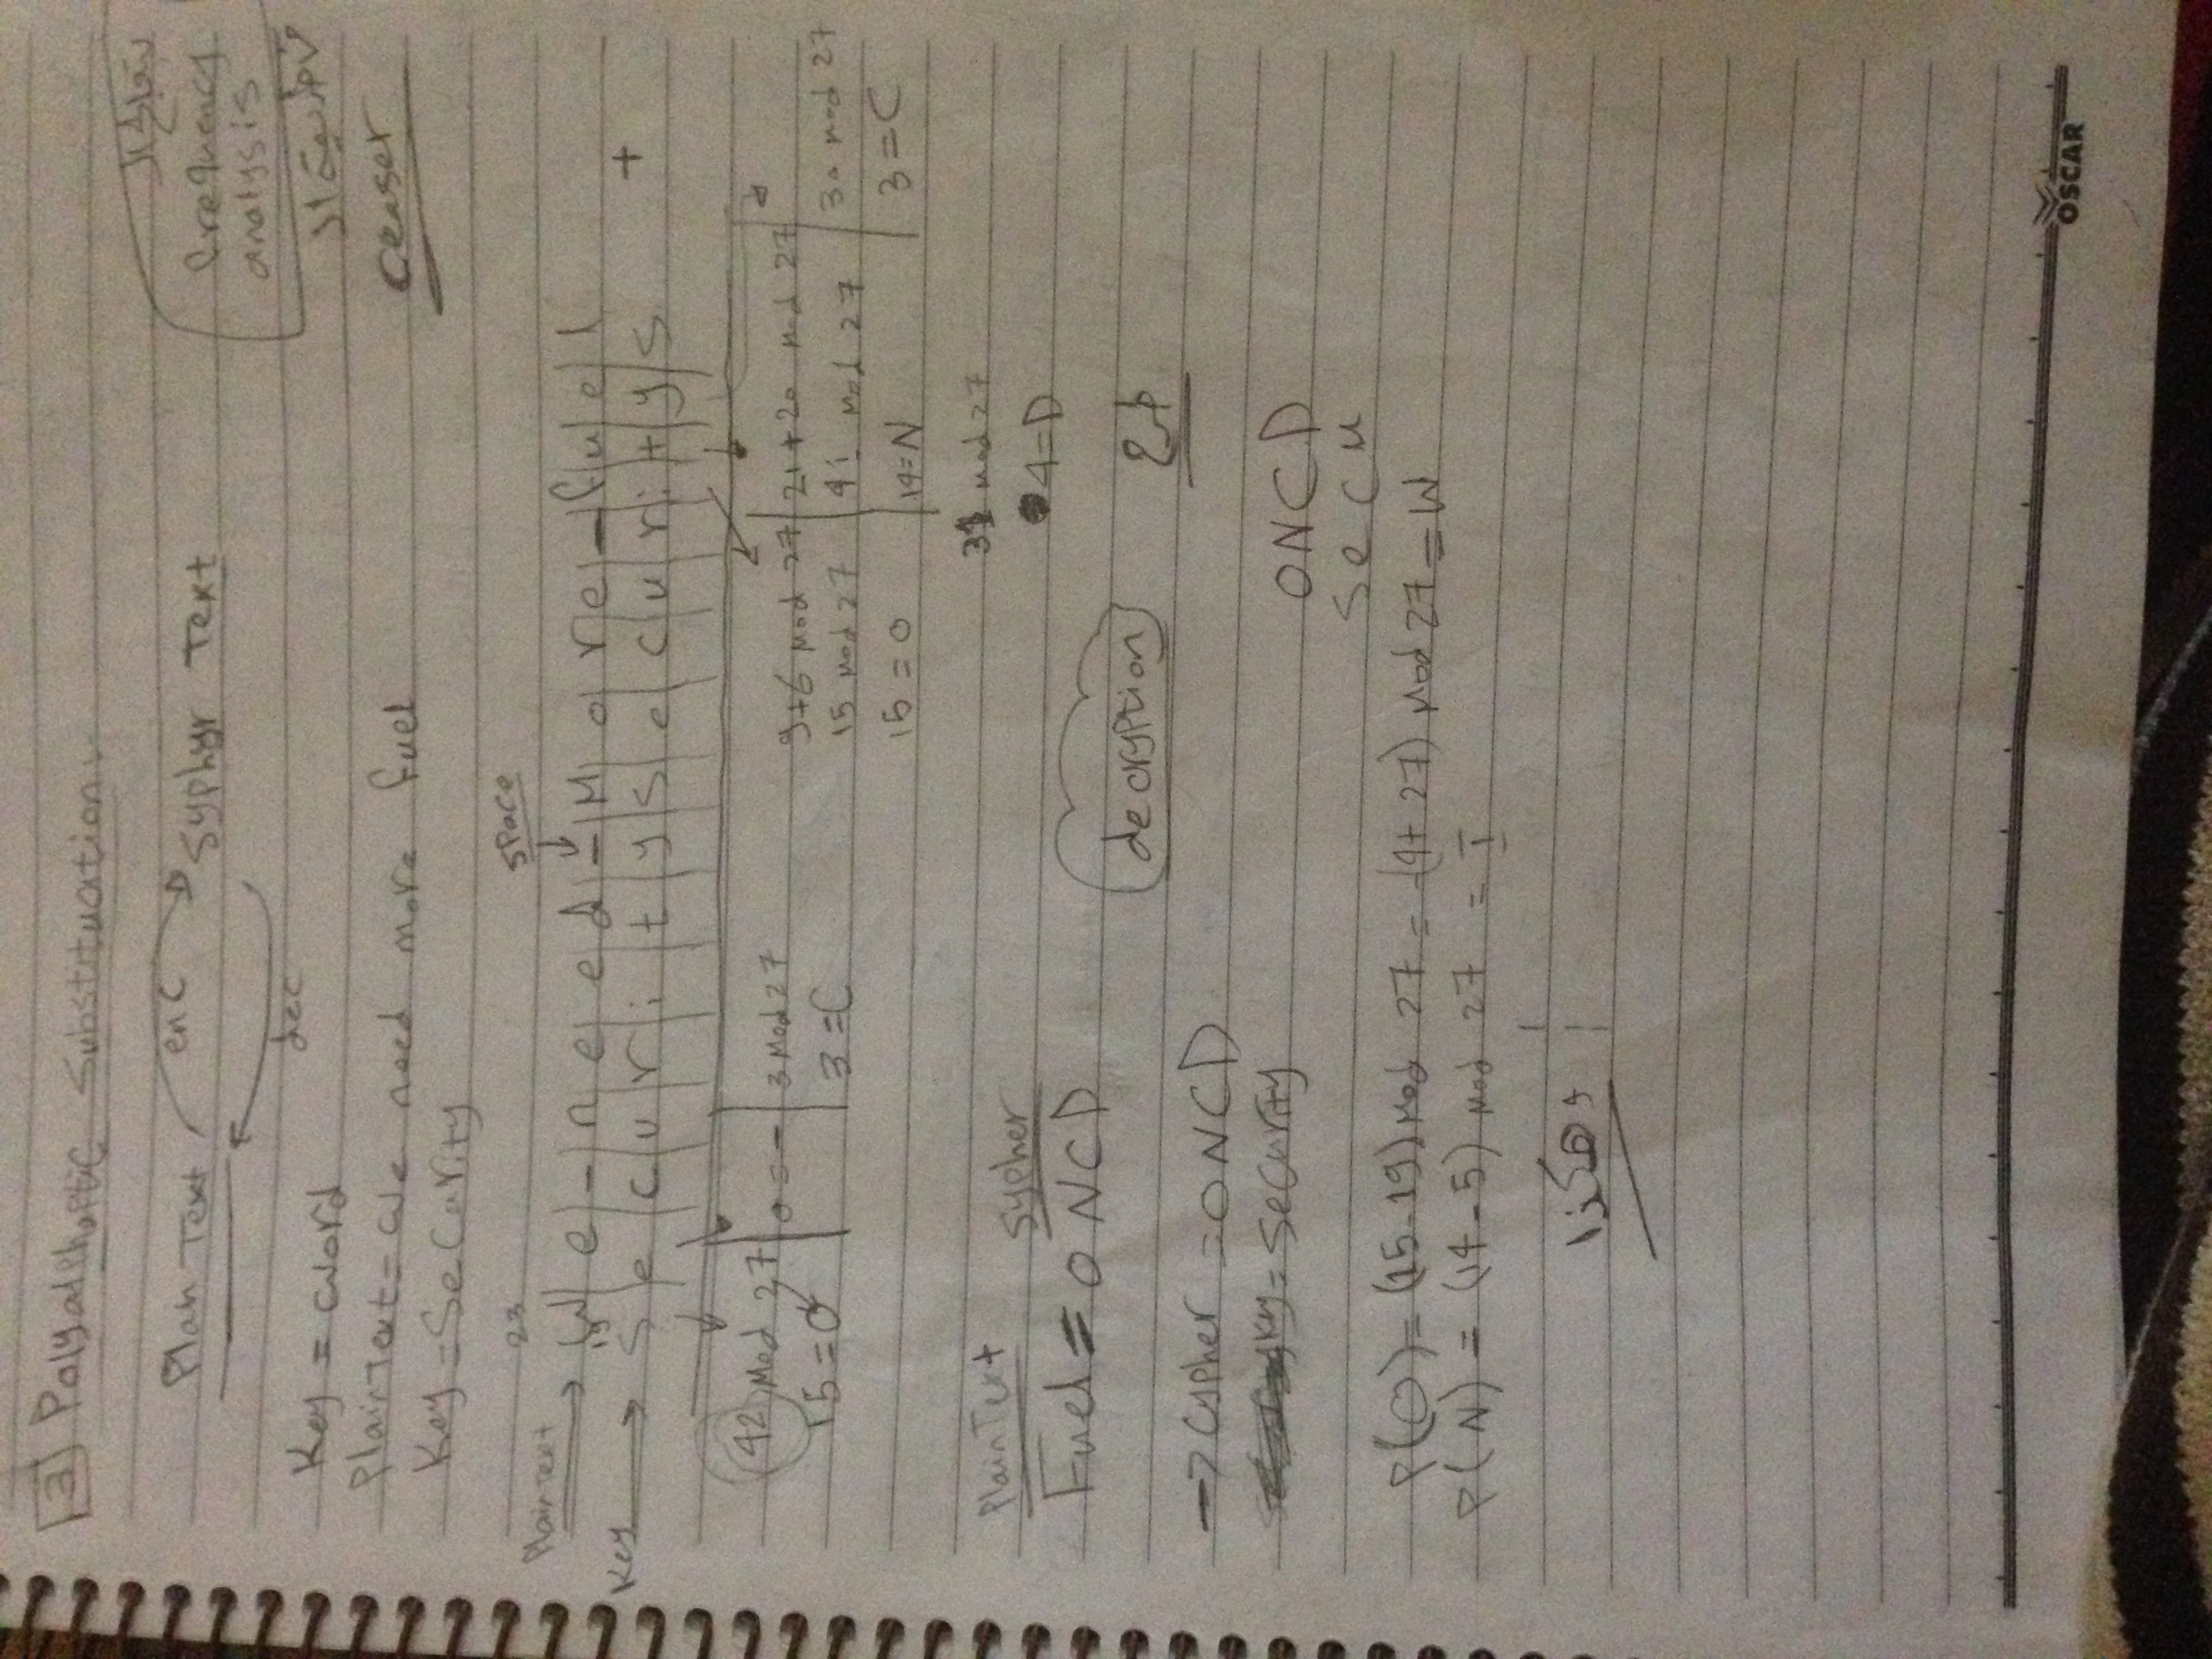 [3] Polyalphaptic Substituation:
Plain Text enc Syphyr Text
dec
frequency
analysis
Ceaser
Key = word
PlainText = We need more fuel
Key = Security
23
space
PlainText → W e - n e e d - M o r e - f u e l
19
Key → S e c u r i t y s e c u r i t y s +
42 Mod 27 | 0 = - | 3 Mod 27
15 = O | 3 = C
9+6 mod 27 | 21 + 20 mod 27
15 mod 27 | 41 mod 27 | 30 mod 27
15 = O | 14 = N | 3 = C
31 mod 27
4 = D
PlainText Sypher
Fuel = ONCD
decryption
→ Cypher = ONCD
Key = Security
ONCD
Secu
P(O) = (15-19) Mod 27 = (4+ 27) Mod 27 = W
P(N) = (14-5) Mod 27 = I
وهكذا
OSCAR